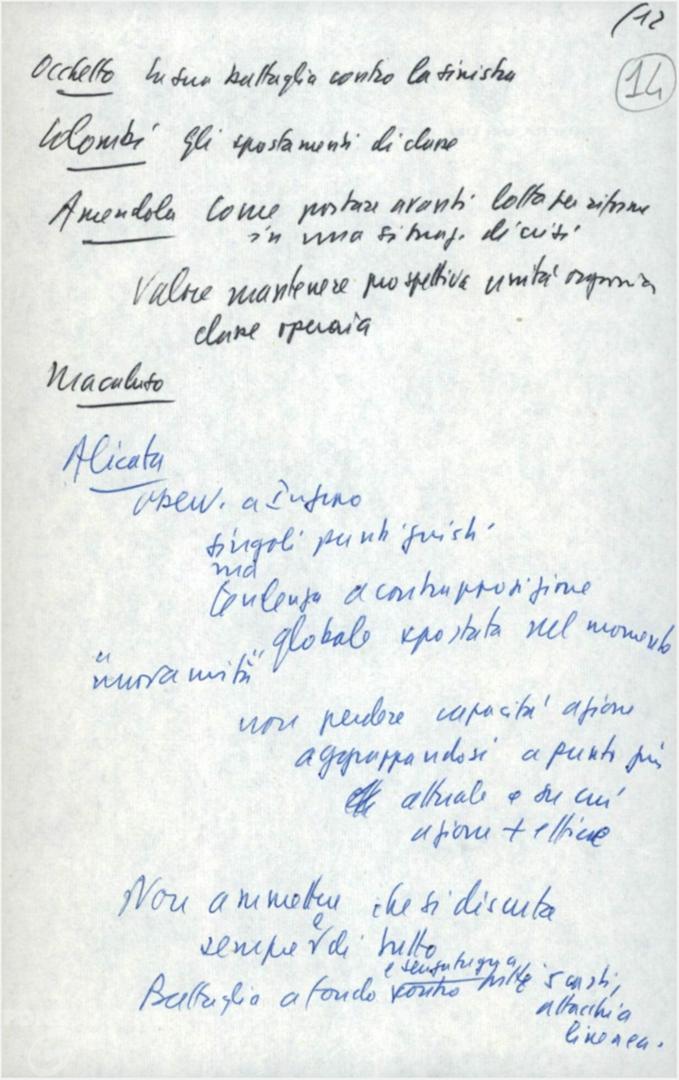 (12
14
Occhetto la sua battaglia contro la sinistra
Colombi gli spostamenti di classe
Amendola Come portare avanti lotta per riforme
in una situaz. di crisi
Valore mantenere prospettiva unità organica
classe operaia
Macaluso
Alicata
osserv. a Ingrao
singoli punti giusti
ma
tendenza a contrapposizione
globale spostata nel momento
"nuova unità"
non perdere capacità azione
aggrappandosi a punti più
attuale e su cui
azione + efficace
Non ammettere che si discuta
sempre e di tutto
e senza tregua
Battaglia a fondo contro
attacchi a
linea nea.